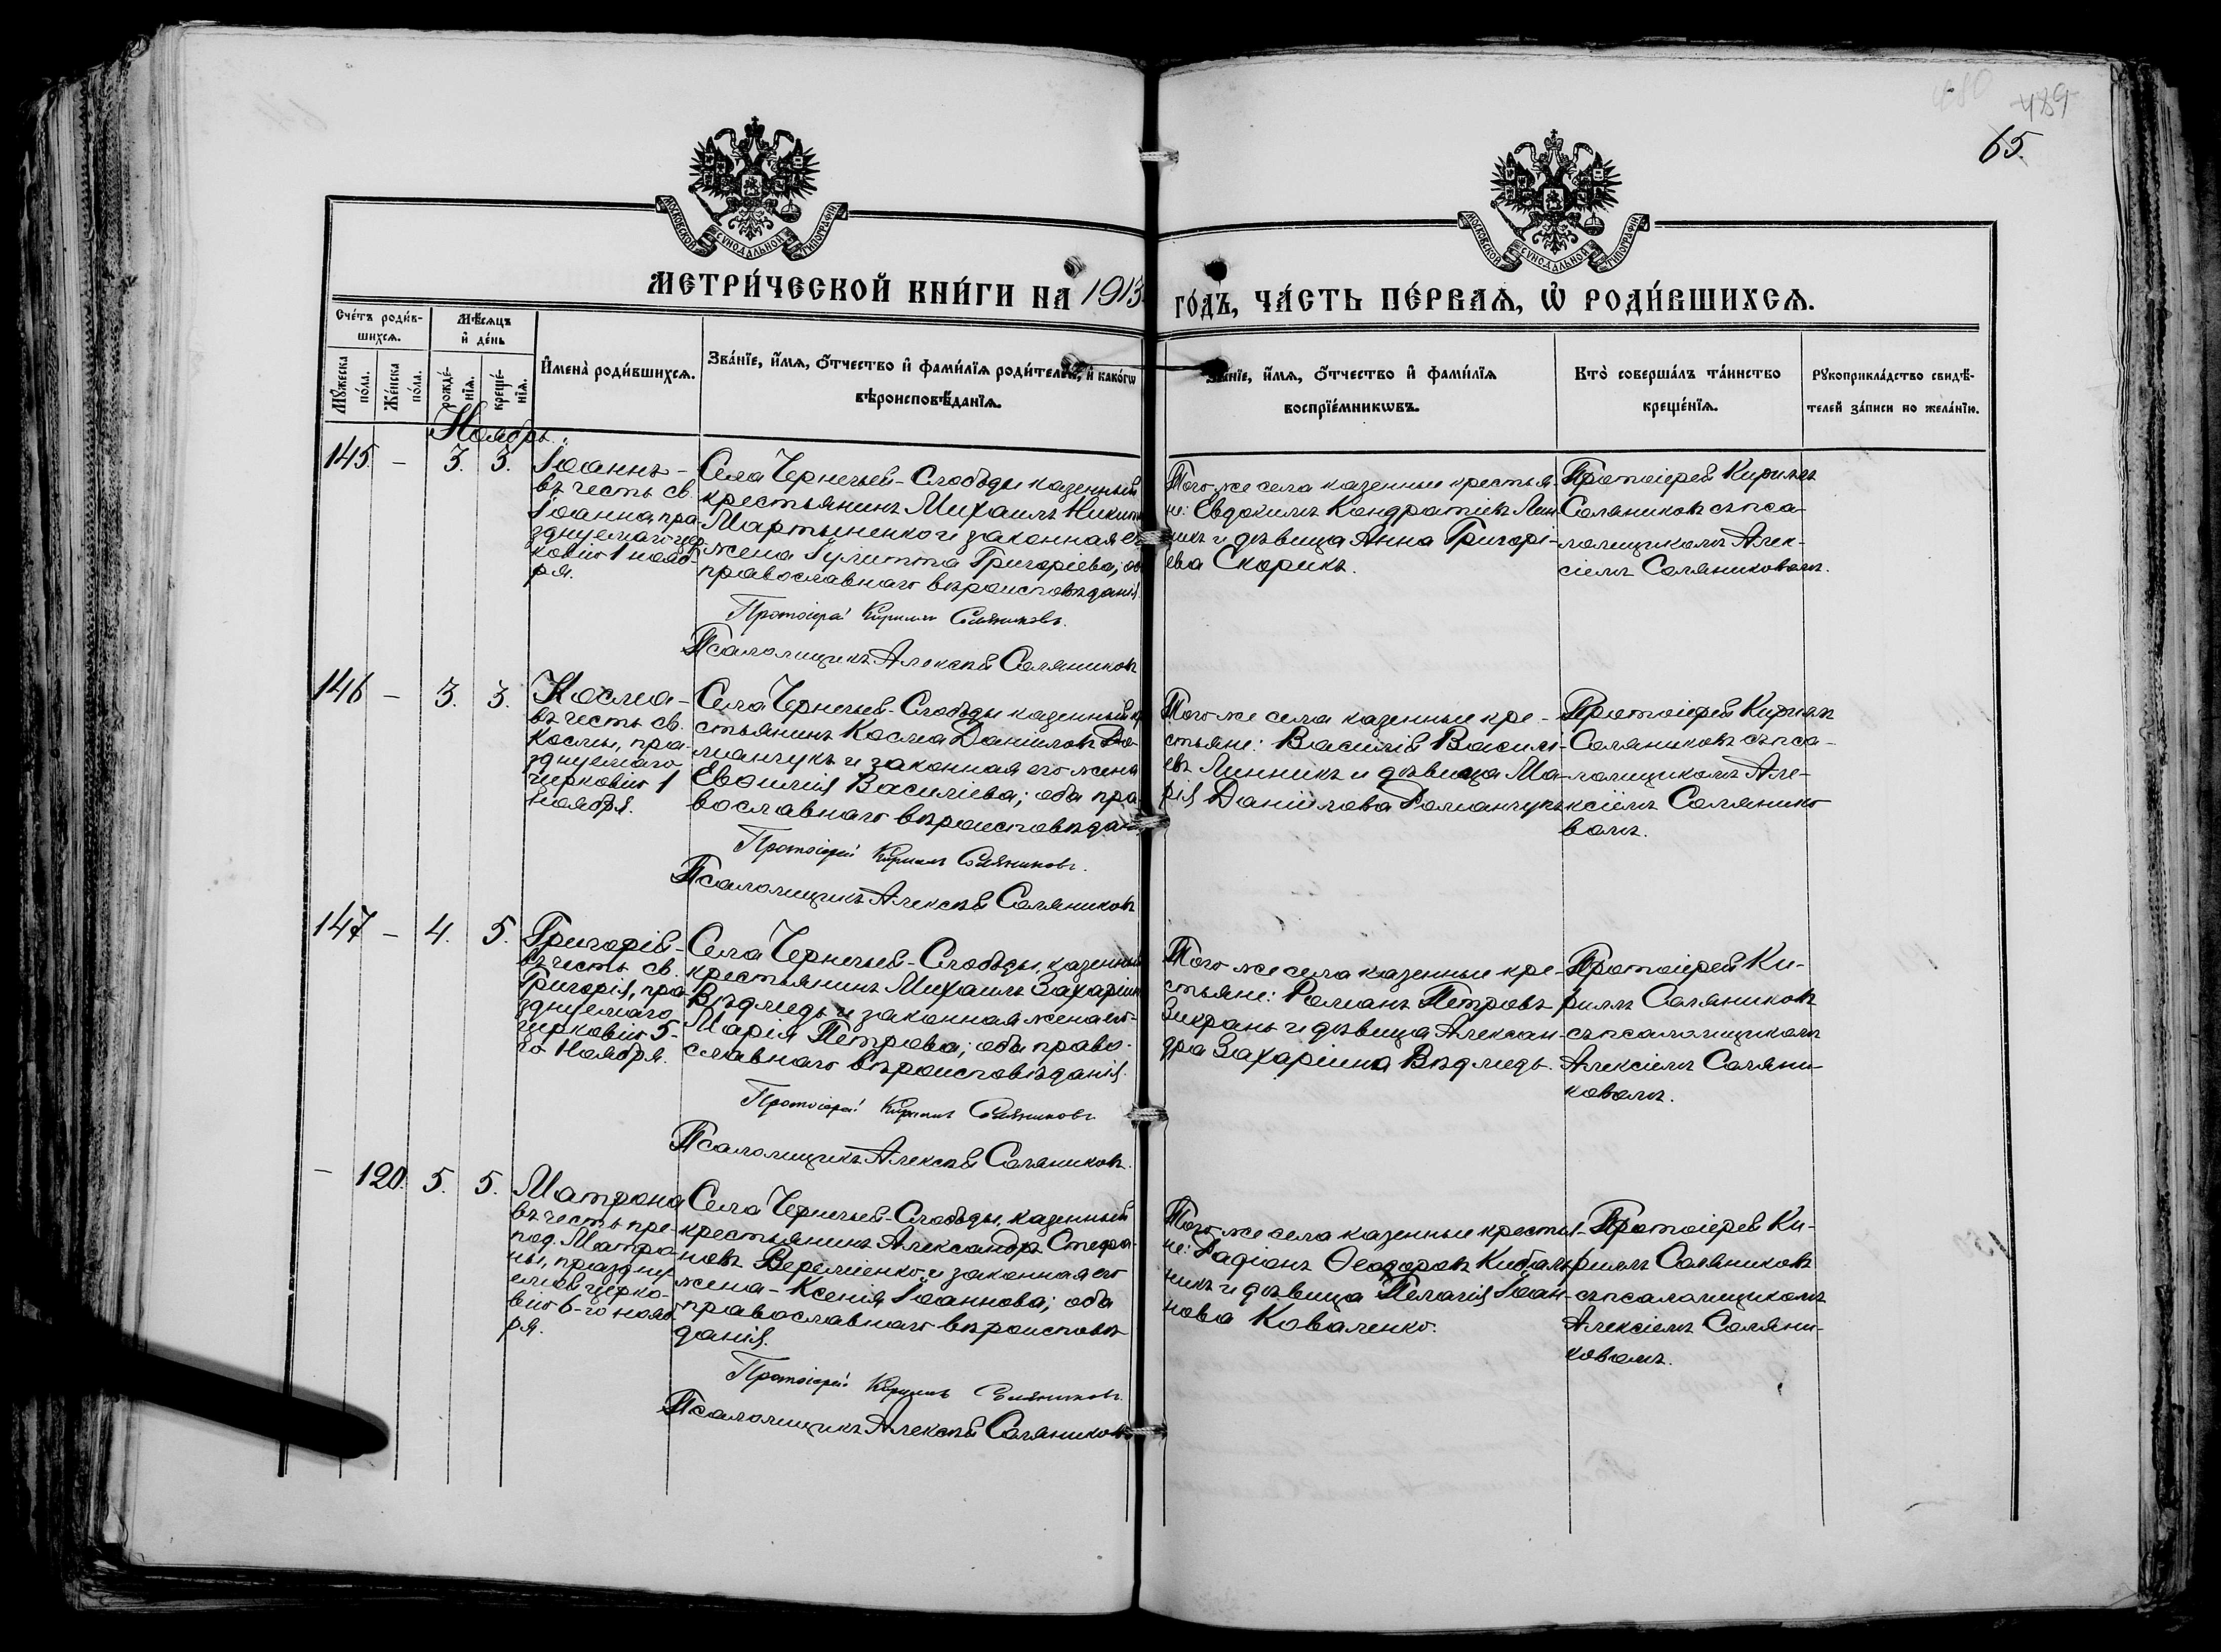 480
489
65.
МОСКОВСКОЙ СѴНОДАЛЬНОЙ ТИПОГРАФІИ
МОСКОВСКОЙ СѴНОДАЛЬНОЙ ТИПОГРАФІИ
МЕТРИ́ЧЕСКОЙ КНИ́ГИ НА 1913
ГО́ДЪ, ЧА́СТЬ ПЕ́РВАѦ, Ѽ РОДИ́ВШИХСѦ.
Сче́тъ роди́в-
шихсѧ.
Мѣ́сѧцъ
и҆ де́нь
Мꙋ́жеска
по́ла.
Же́нска
по́ла.
рожде́-
нїѧ.
креще́-
нїѧ.
И҆мена̀ роди́вшихсѧ.
Зва́нїе, и҆́мѧ, ѻ҆́тчество и҆ фами́лїѧ роди́телей, и҆ како́гѡ
вѣроисповѣ́данїѧ.
Зва́нїе, и҆́мѧ, ѻ҆́тчество и҆ фами́лїѧ
воспрїе́мникѡвъ.
Кто̀ соверша́лъ та́инство
креще́нїѧ.
Рꙋкоприкла́дство свидѣ́-
телей за́писи по жела́нїю.
Ноябрь.
145. - 3. 3.
Іоаннъ -
въ честь св.
Іоанна, пра-
зднуемаго цер-
ковію 1 нояб-
ря.
Села Чернечьей-Слободы казенный
крестьянинъ Михаилъ Никит
Мартыненко и законная е
жена Іулитта Григоріева; об
православнаго вѣроисповѣданія.
Протоіерей Кириллъ Соляниковъ.
Псаломщикъ Алексѣй Соляниковъ
Того же села казенные крестья-
не: Евдокимъ Кондратіевъ Лин-
никъ и дѣвица Анна Григорі-
ева Скорикъ.
Протоіерей Кириллъ
Соляниковъ съ пса-
ломщикомъ Алек-
сіемъ Соляниковымъ.
146 - 3. 3.
Косма -
въ честь св.
Космы, пра-
зднуемаго
церковію 1
ноября.
Села Чернечьей-Слободы казенный кр
стьянинъ Косма Даніиловъ Ро-
манчукъ и законная его жена
Евѳимія Василіева; оба пра
вославнаго вѣроисповѣдан
Протоіерей Кириллъ Соляниковъ.
Псаломщикъ Алексѣй Соляниковъ
Того же села казенные кре-
стьяне: Василій Васили-
евъ Линникъ и дѣвица Ма-
рія Даніилова Романчукъ
Протоіерей Кириллъ
Соляниковъ съ пса-
ломщикомъ Але-
ксіемъ Солянико
вымъ.
147 - 4. 5.
Григорій -
въ честь св.
Григорія, пра-
зднуемаго
церковію 5-
го Ноября.
Села Чернечьей-Слободы, казенный
крестьянинъ Михаилъ Захаріинъ
Вѣдмедь и законная жена его-
Марія Петрова; оба право-
славнаго вѣроисповѣданія.
Протоіерей Кириллъ Соляниковъ
Псаломщикъ Алексѣй Соляниковъ.
Того же села казенные кре-
стьяне: Романъ Петровъ
и дѣвица Алексан-
дра Захаріина Вѣдмедь.
Протоіерей Ки-
риллъ Соляниковъ
съ псаломщикомъ
Алексіемъ Соляни-
ковымъ.
- 120. 5. 5.
Матрона
въ честь пре-
под. Матро-
ны, праздну-
емой церко-
вію 6-го нояб-
ря.
Села Чернечьей-Слободы, казенный
крестьянинъ Александръ Стефа-
новъ Веремиенко и законная его
жена - Ксенія Іоаннова; оба
православнаго вѣроисповѣ-
данія.
Протоіерей Кириллъ Соляниковъ.
Псаломщикъ Алексѣй Соляниковъ
Того же села казенные крестья-
не: Радіонъ Ѳеодоровъ Кибаль-
никъ и дѣвица Пелагія Іоан-
нова Коваленко.
Протоіерей Ки-
риллъ Соляниковъ
съ псаломщикомъ
Алексіемъ Соляни-
ковымъ.